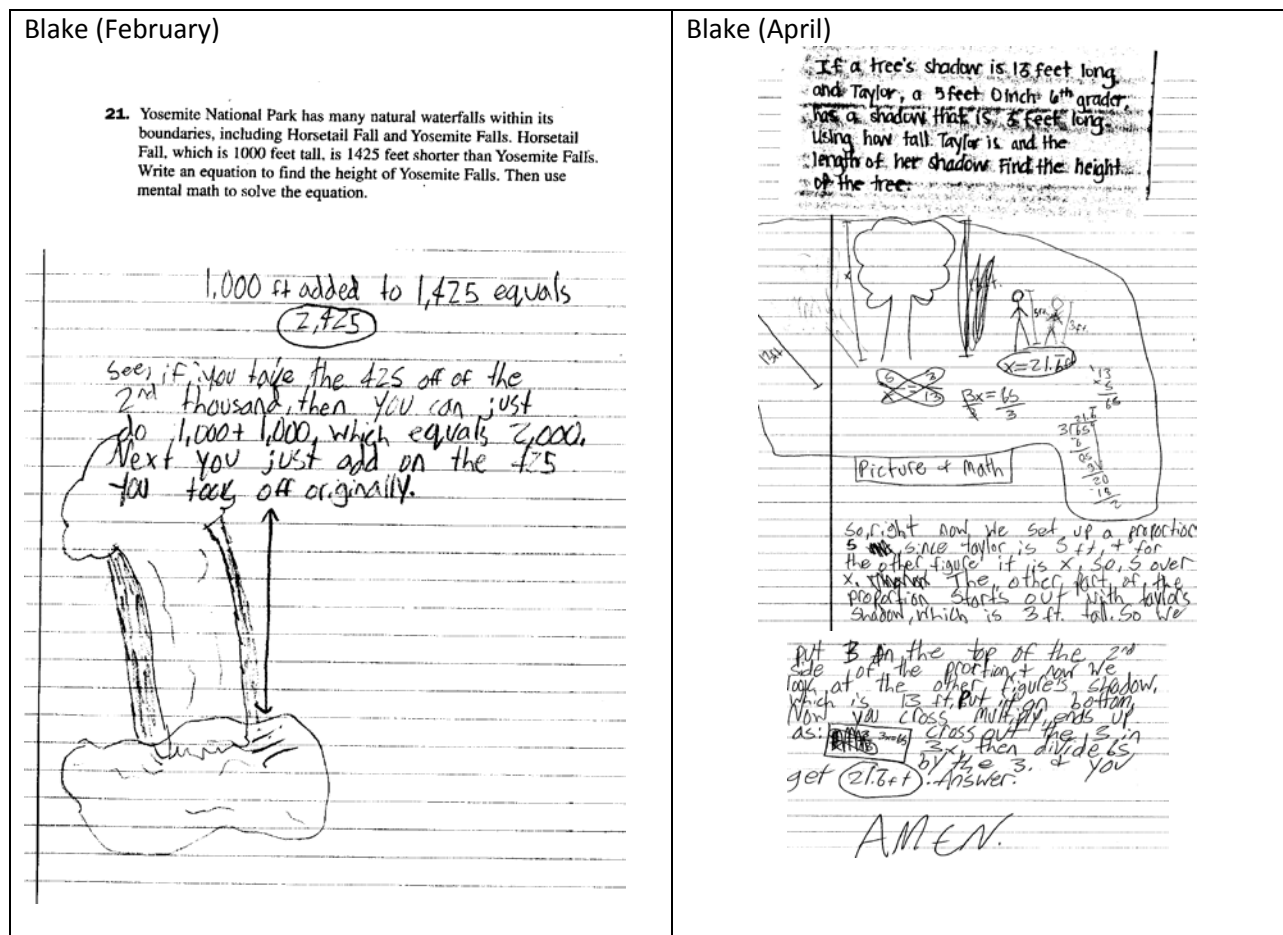 Blake (February)
21. Yosemite National Park has many natural waterfalls within its
boundaries, including Horsetail Fall and Yosemite Falls. Horsetail
Fall, which is 1000 feet tall, is 1425 feet shorter than Yosemite Falls.
Write an equation to find the height of Yosemite Falls. Then use
mental math to solve the equation.
1,000 ft added to 1,425 equals
2,425
See, if you take the 425 off of the
2nd thousand, then you can just
do 1,000 + 1,000, which equals 2,000.
Next you just add on the 425
you took off originally.
Blake (April)
If a tree's shadow is 13 feet long
and Taylor, a 5 feet 0 inch 6th grader,
has a shadow that is 3 feet long
using how tall Taylor is and the
length of her shadow Find the height
of the tree.
x
5ft.
3ft.
13ft
x=21.6ft
5 = 3
x 13
3x = 65
3 3
13
x5
65
21.6
3 65
6
05
3
20
18
2
Picture + Math
So, right now we set up a proportion
5 since taylor is 5 ft, + for
the other figure it is x, so, 5 over
x. The other part of the
proportion starts out with taylor's
shadow, which is 3 ft. tall. So we
put 3 on the top of the 2nd
side of the proortion, + now we
look at the other figure's shadow,
which is 13 ft, put it on bottom,
Now you cross multiply, ends up
as: 3x=65 cross out the 3 in
3x, then divide 65
by the 3. + you
get 21.6 ft. Answer.
AMEN.